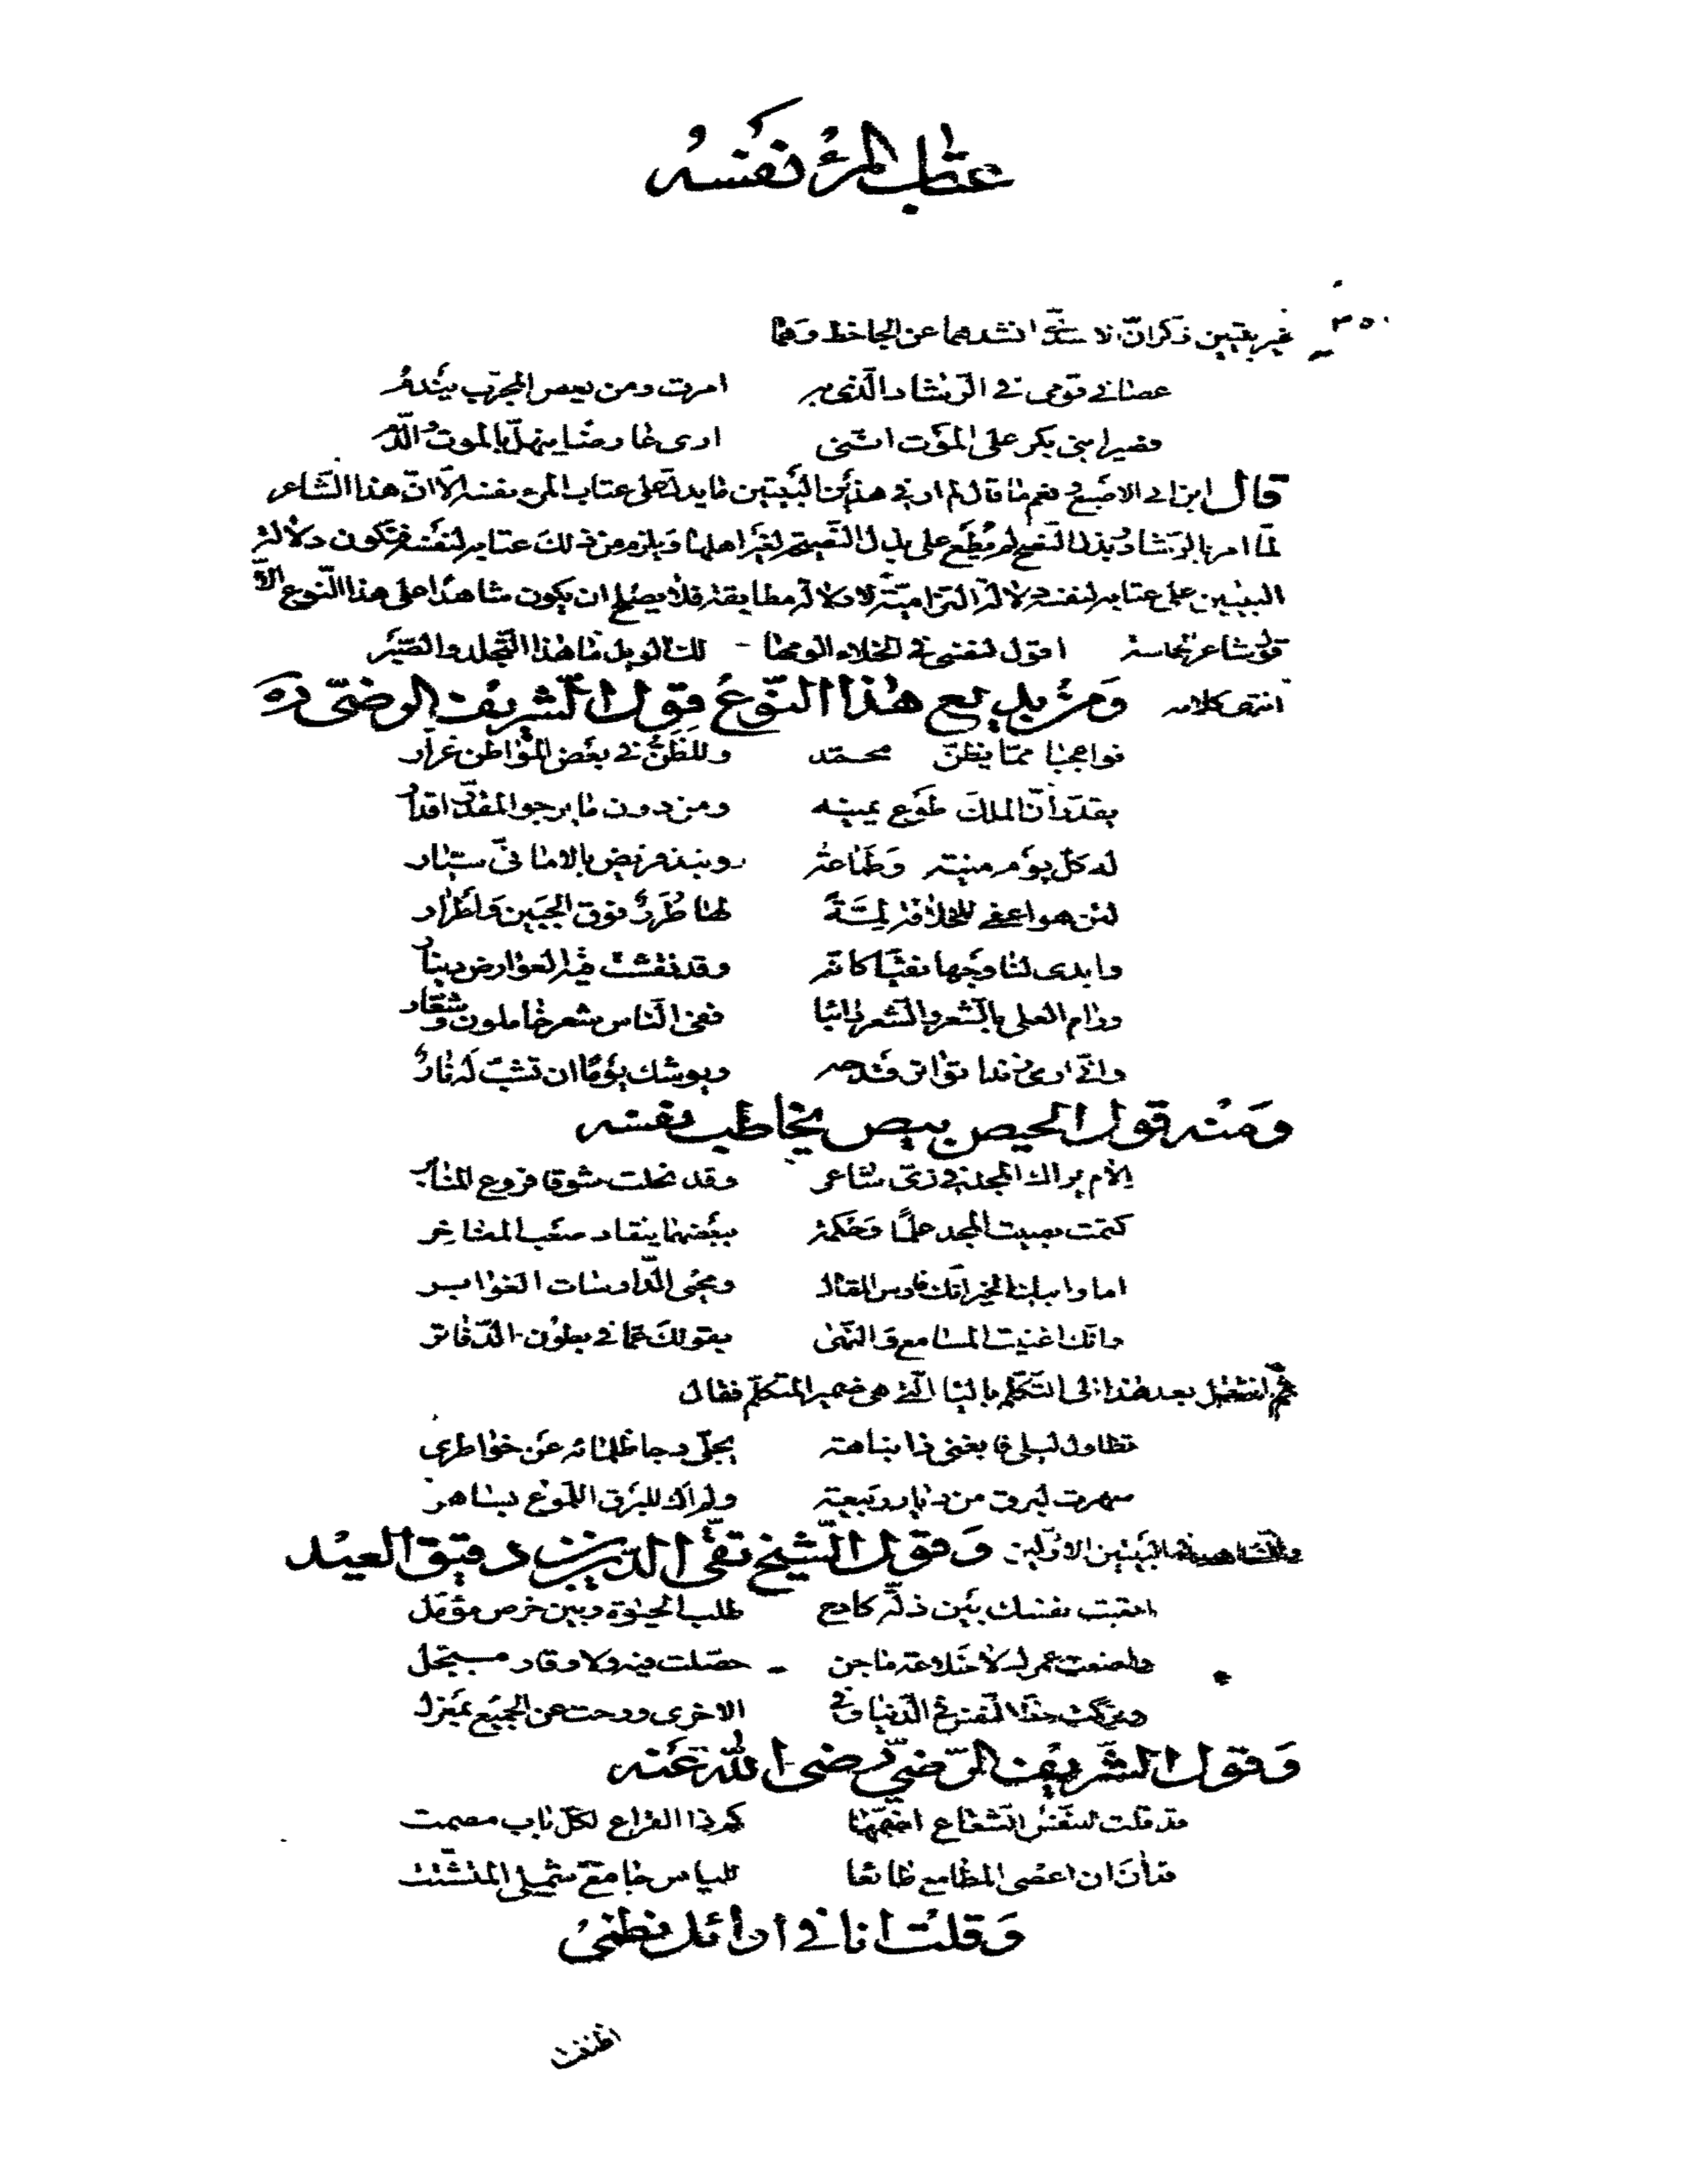 عتاب المرء نفسه
٣٥٠
غير بيتين ذكر انّ الاسدىّ انشدهما عن الجاحظ وهما
عصانى قومى فى الرّشاد الّذى به امرت ومن يعص المجرّب يندم
فصبرا بنى بكر على الموت انّنى ارى عارضا ينهلّ بالموت والدّم
قال ابن ابى الاصبع فى نعم ما قال لم ار فى هذين البيتين ما يدلّ على عتاب المرء نفسه الّا انّ هذا الشّاعر
لمّا امر بالرّشاد وبذل النّصح لم يُطَع على بذل النّصيحة لغير اهلها ويلزم من ذلك عتابه لنفسه فتكون دلالة
البيتين على عتابه لنفسه دلالة التزاميّة لا دلالة مطابقة فلا يصلح ان يكون شاهدا على هذا النّوع الّا
قول شاعر الحماسة اقول لنفسى فى الخلاء الومها لك الويل ما هذا التّجلّد والصّبر
انتهى كلامه ومن بديع هذا النّوع قول الشريف الرضىّ ره
فواعجبا ممّا يظنّ محمّد وللظنّ فى بعض المواطن غرّار
يقدّر انّ الملك طوع يمينه ومن دون ما يرجو المقدّر اقدار
له كلّ يوم منية وطماعة ونبذ قريض بالامانىّ سيّار
لئن هو اعفى للخلافة لمّة لها طرر فوق الجبين واطرار
وابدى لنا وجها نقيّا كانّه وقد نقشت فيه العوارض دينار
ورام العلى بالشّعر والشّعر دائبا ففى النّاس شعر خاملون وشعّار
وانّى ارى زندا تواتر قدحه ويوشك يوما ان تشبّ له نار
ومنه قول الحيص بيص يخاطب نفسه
الام يراك المجد فى زىّ شاعر وقد نحلت شوقا فروع المنابر
كتمت بصيت المجد علما وحكمة ببعضهما ينقاد صعب المفاخر
اما وابيك الخير انّك فارس المقال ومحيى الدّارسات الغوابر
وانّك اغنيت المسامع والنّهى بقولك عمّا فى بطون الدّفاتر
ثم انتقل بعد هذا الى التّكلّم باليا الّتى هى ضمير المتكلّم فقال
تطاول ليلى ما بغنى ذا نباهة يجلّى دجا ظلمائه عن خواطرى
سهرت لبرق من ديار ربيعة ولم اك للبرق اللّموع بساهر
والشّاهد فى البيتين الاوّلين وقول الشّيخ تقىّ الدّين بن دقيق العيد
اتعبت نفسك بين ذلّة كادح طلب الحيوة وبين حرص مؤمّل
واضعت عمرك لا خلاعة ماجن حصّلت فيه ولا وقار مبجّل
وتركت حظّ النّفس فى الدّنيا وفى الاخرى ورحت عن الجميع بمعزل
وقول الشّريف الرّضىّ رضى الله عنه
قد قلت للنّفس الشّعاع اضمّها كم ذا القراع لكلّ باب مصمت
قد آن ان اعصى المطامع طائعا للياس جامع شملى المتشتّت
وقلت انا فى اوائل نظمى